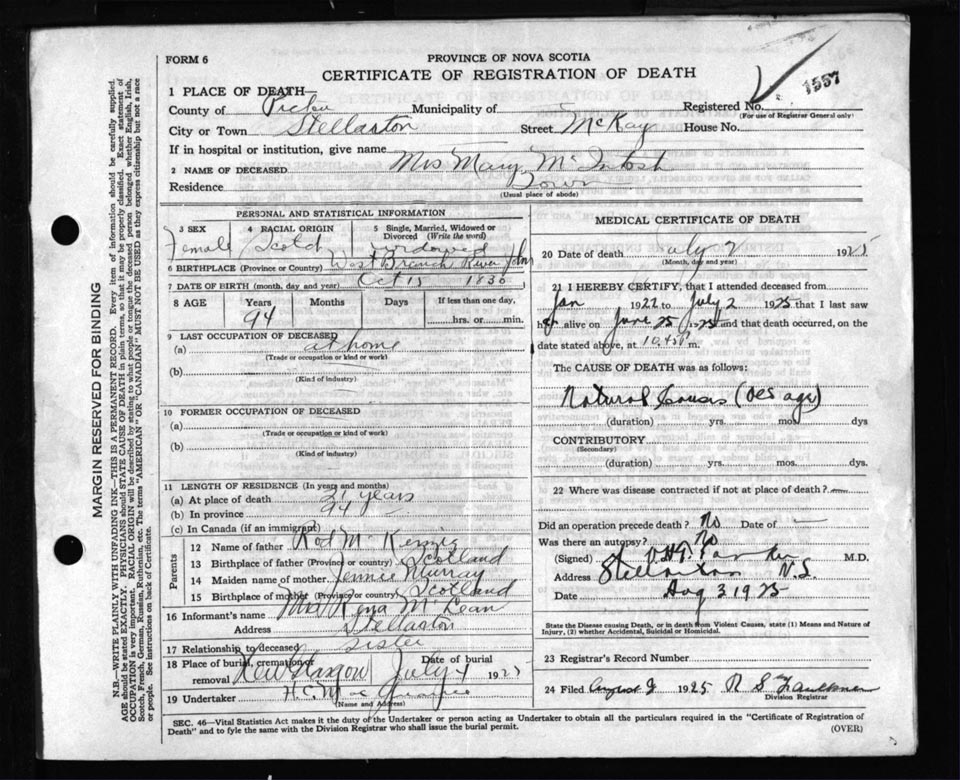 FORM 6
PROVINCE OF NOVA SCOTIA
CERTIFICATE OF REGISTRATION OF DEATH
1557
1 PLACE OF DEATH—
County of Pictou Municipality of Registered No.
(For use of Registrar General only)
City or Town Stellarton Street McKay House No.
If in hospital or institution, give name
2 NAME OF DECEASED Mrs Mary McIntosh
Residence Down
(Usual place of abode)
PERSONAL AND STATISTICAL INFORMATION
3 SEX 4 RACIAL ORIGIN 5 Single, Married, Widowed or Divorced (Write the word)
Female Scotch Widowed
6 BIRTHPLACE (Province or Country) West Branch River John
7 DATE OF BIRTH (month, day and year) Oct 15 1830
8 AGE Years Months Days If less than one day,
94 hrs. or min.
9 LAST OCCUPATION OF DECEASED
(a) at home
(Trade or occupation or kind or work)
(b)
(Kind of industry)
10 FORMER OCCUPATION OF DECEASED
(a)
(Trade or occupation or kind of work)
(b)
(Kind of industry)
11 LENGTH OF RESIDENCE (In years and months)
(a) At place of death 21 years
(b) In province 94
(c) In Canada (if an immigrant)
Parents
12 Name of father Rod McKenzie
13 Birthplace of father (Province or country) Scotland
14 Maiden name of mother Jennie Murray
15 Birthplace of mother (Province or country) Scotland
16 Informant's name Mrs McLean
Address Stellarton
17 Relationship to deceased sister
18 Place of burial, cremation or removal New Glasgow Date of burial July 4 1925
19 Undertaker H.C.
(Name and Address)
MEDICAL CERTIFICATE OF DEATH
20 Date of death July 2 1925
(Month, day and year)
21 I HEREBY CERTIFY, that I attended deceased from
Jan 1922 to July 2 1925 that I last saw
her alive on June 25 1925 and that death occurred, on the
date stated above, at 10.45 P m.
The CAUSE OF DEATH was as follows:
Natural Causes (old age)
(duration) yrs. mos. dys
CONTRIBUTORY
(Secondary)
(duration) yrs. mos. dys.
22 Where was disease contracted if not at place of death?
Did an operation precede death? No Date of —
Was there an autopsy? No
(Signed) M.D.
Address Stellarton N.S.
Date Aug 3 1925
State the Disease causing Death, or in death from Violent Causes, state (1) Means and Nature of
Injury, (2) whether Accidental, Suicidal or Homicidal.
23 Registrar's Record Number
24 Filed August 9 1925 R S Faulkner
Division Registrar
SEC. 46—Vital Statistics Act makes it the duty of the Undertaker or person acting as Undertaker to obtain all the particulars required in the "Certificate of Registration of
Death" and to fyle the same with the Division Registrar who shall issue the burial permit.
(OVER)
MARGIN RESERVED FOR BINDING
N.B.—WRITE PLAINLY WITH UNFADING INK—THIS IS A PERMANENT RECORD. Every item of information should be carefully supplied.
AGE should be stated EXACTLY. PHYSICIANS should STATE CAUSE OF DEATH in plain terms, so that it may be properly classified. Exact statement of
OCCUPATION is very important. RACIAL ORIGIN will be described by stating to what people or tongue the deceased person belonged whether English, Irish,
Scotch, French, German, Russian, Ruthenian, etc. The terms "AMERICAN" or "CANADIAN" MUST NOT BE USED as they express citizenship but not a race
or people. See instructions on back of Certificate.